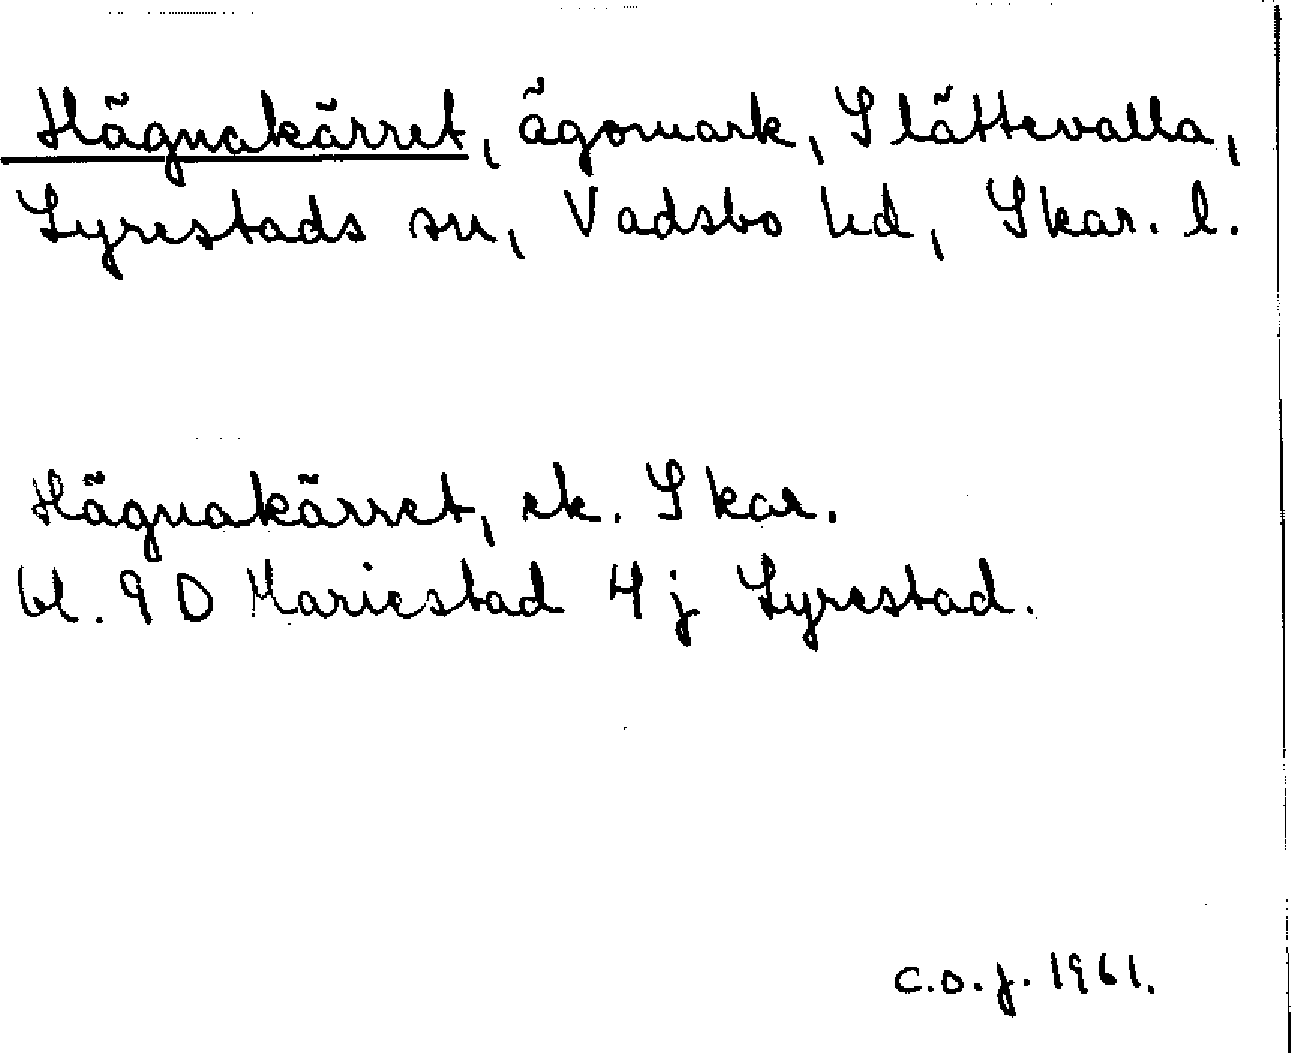 Hägnakärret, ägomark, Slättevalla,
Lyrestads sn, Vadsbo hd, Skar. l.
Hägnakärret, ek. Skar.
bl. 9D Mariestad 4j Lyrestad.
C.O.J. 1961.